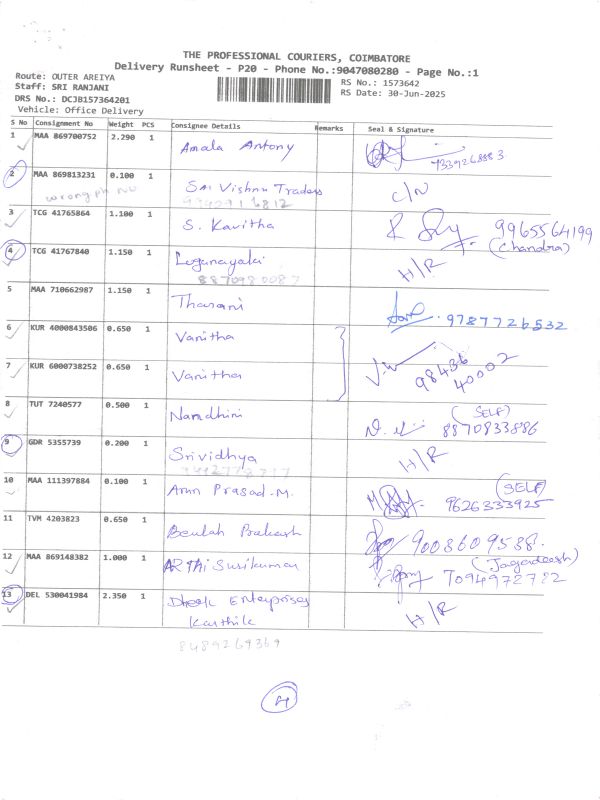 THE PROFESSIONAL COURIERS, COIMBATORE
Delivery Runsheet - P20 - Phone No.:9047080280 - Page No.:1
Route: OUTER AREIYA
RS No.: 1573642
Staff: SRI RANJANI
RS Date: 30-Jun-2025
DRS No.: DCJB157364201
Vehicle: Office Delivery
S No Consignment No Weight PCS Consignee Details Remarks Seal & Signature
1 MAA 869700752 2.290 1 Amala Antony 7339268883
2 MAA 869813231 0.100 1 Sai Vishnu Traders C/N
wrong ph no
3 TCG 41765864 1.100 1 S. Kavitha 9965564199
(Chandra)
4 TCG 41767840 1.150 1 Loganayaki H/R
8870980087
5 MAA 710662987 1.150 1 Tharani 9787726532
6 KUR 4000843506 0.650 1 Vanitha
7 KUR 6000738252 0.650 1 Vanitha 98436
40002
8 TUT 7240577 0.500 1 Nandhini (SELF)
8870833886
9 GDR 5355739 0.200 1 Srividhya H/R
10 MAA 111397884 0.100 1 Arun Prasad.M. (SELF)
9626333925
11 TVM 4203823 0.650 1 Beulah Prakash 9008609588.
12 MAA 869148382 1.000 1 ARTHI Surikumar (Jagadeesh)
7094972722
13 DEL 530041984 2.350 1 Enterprises H/R
Karthik
8489269369
4